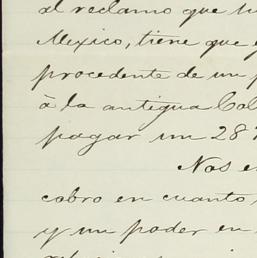 al reclamo que
Mexico, tiene que
procedente de un
à la antigua Col
pagar un 28
Nos
cobro en cuanto,
y un poder en